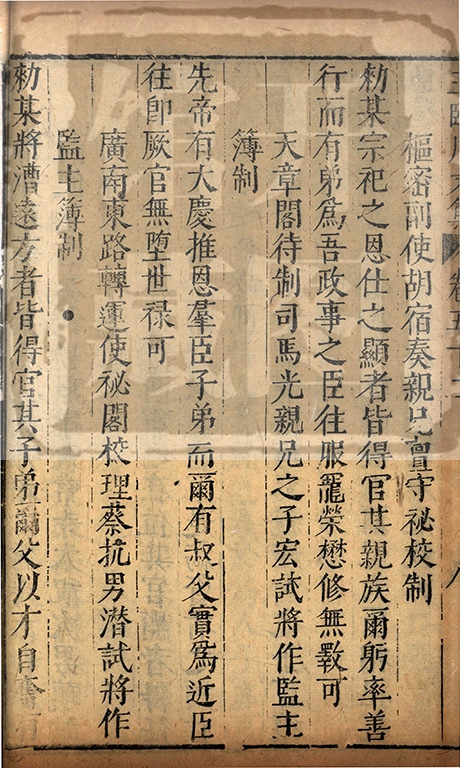 王臨川文集 卷五十二 八
樞密副使胡宿奏親兄亶守祕校制
勑某宗祀之恩仕之顯者皆得官其親族爾躬率善
行而有弟爲吾政事之臣往服寵榮懋修無斁可
天章閣待制司馬光親兄之子宏試將作監主
簿制
先帝有大慶推恩羣臣子弟而爾有叔父實爲近臣
往卽厥官無墮世禄可
廣南東路轉運使祕閣校理蔡抗男潛試將作
監主簿制
勑某將漕遠方者皆得官其子弟爾父以才自奮